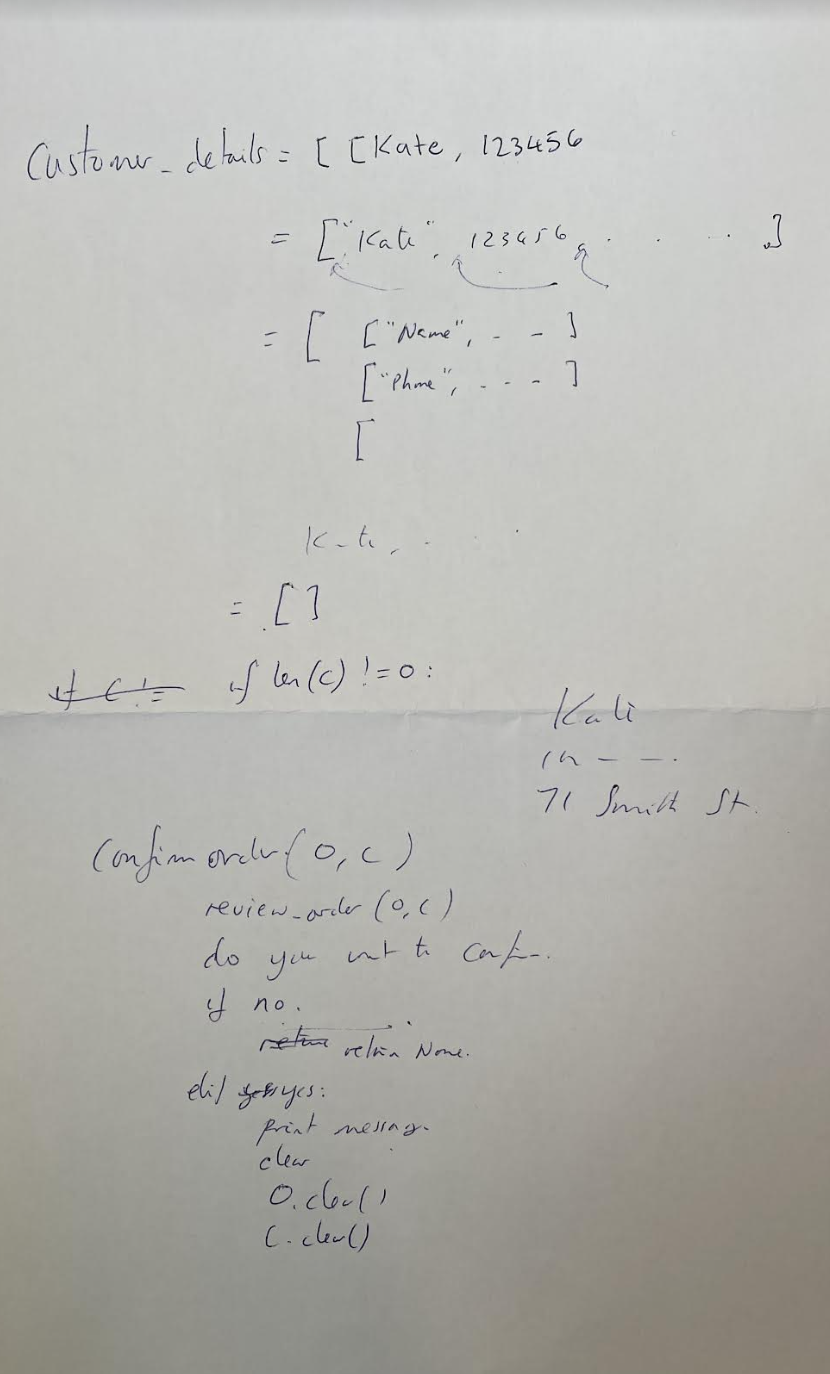 Customer_details = [ [Kate, 123456
= ["Kate", 123456, . . . . ]
= [ ["Name", - - ]
["Phone", - - - - ]
[
= [ ]
if C != if len(c) != 0 :
Kate
71 Smith St.
Confirm order ( O, C )
review_order (O, C)
do you want to
if no.
return return None.
elif yes:
print message.
clear
O.clear()
C.clear()